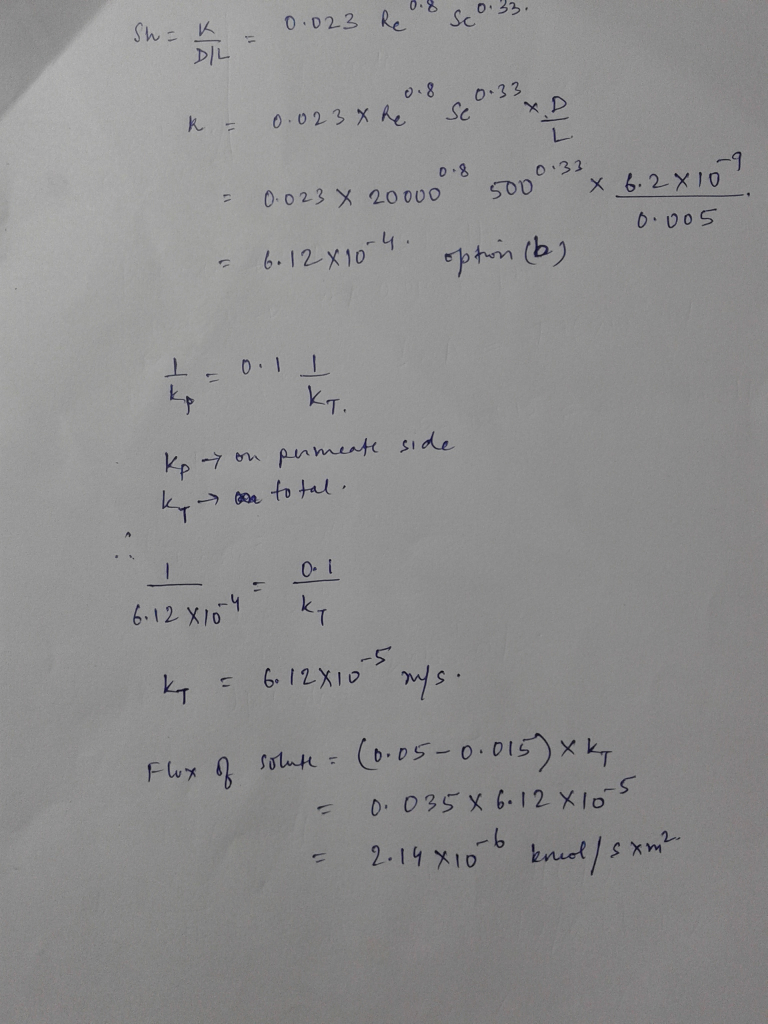 Sh = K / D/L = 0.023 Re^0.8 Sc^0.33.
k = 0.023 × Re^0.8 Sc^0.33 × D / L
= 0.023 × 20000^0.8 500^0.33 × 6.2 × 10^-9 / 0.005.
= 6.12 × 10^-4. option (b)
1 / kp = 0.1 1 / KT.
Kp → on permeate side
kT → total.
∴
1 / 6.12 × 10^-4 = 0.1 / kT
kT = 6.12 × 10^-5 m/s.
Flux of solute = (0.05 - 0.015) × kT
= 0.035 × 6.12 × 10^-5
= 2.14 × 10^-6 kmol / s × m^2